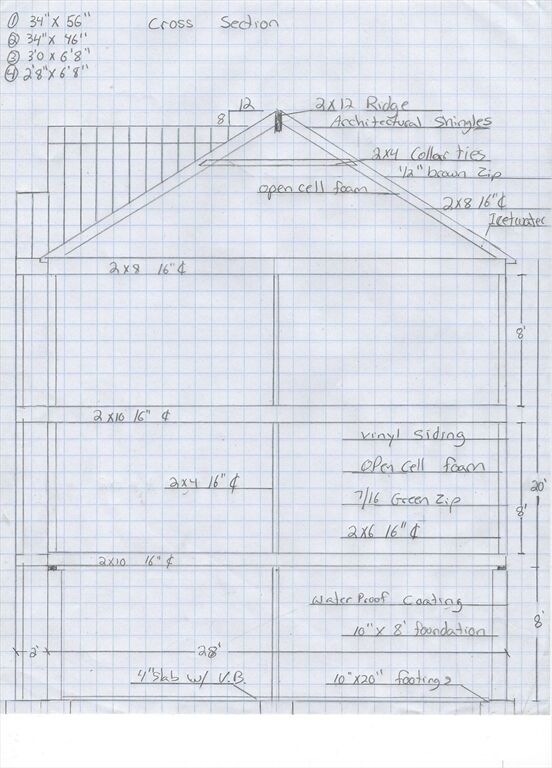 ① 34" x 56"
② 34" x 46"
③ 3'0 x 6'8"
④ 2'8" x 6'8"
Cross Section
12
8
2x12 Ridge
Architectural Shingles
2x4 Collar ties
1/2" brown Zip
open cell foam
2x8 16" ¢
Ice+water
2x8 16" ¢
8'
2x10 16" ¢
Vinyl Siding
Open Cell foam
2x4 16" ¢
7/16 Green Zip
20'
8'
2x6 16" ¢
2x10 16" ¢
Water Proof Coating
8'
10" x 8' foundation
2'
28'
4" Slab w/ V.B.
10"x20" footings